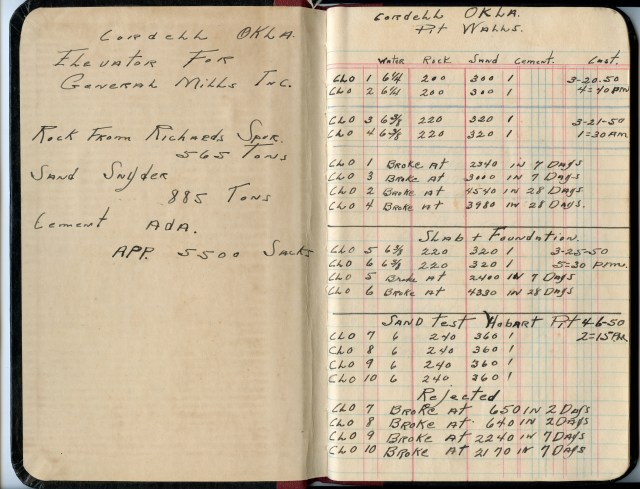 Cordell Okla.
Elevator For
General Mills Inc.
Rock From Richards Spur.
565 Tons
Sand Snyder
885 Tons
Cement Ada.
App. 5500 Sacks
Cordell Okla.
Pit Walls.
Water Rock Sand Cement. Cast.
CLO 1 6 1/4 200 300 1 3-20-50
CLO 2 6 1/4 200 300 1 4=40 PM
CLO 3 6 3/8 220 320 1 3-21-50
CLO 4 6 3/8 220 320 1 1=30 AM
CLO 1 Broke At 2340 in 7 Days
CLO 3 Broke At 3000 in 7 Days
CLO 2 Broke At 4540 in 28 Days
CLO 4 Broke At 3980 in 28 Days.
Slab + Foundation.
CLO 5 6 3/8 220 320 1 3-25-50
CLO 6 6 3/8 220 320 1 5=30 P.M.
CLO 5 Broke At 2400 in 7 Days
CLO 6 Broke At 4330 in 28 Days
Sand Test Hobart Pit 4-6-50
CLO 7 6 240 360 1 2=15 PM
CLO 8 6 240 360 1
CLO 9 6 240 360 1
CLO 10 6 240 360 1
Rejected
CLO 7 Broke At 650 in 2 Days
CLO 8 Broke At 640 in 2 Days
CLO 9 Broke At 2240 in 7 Days
CLO 10 Broke At 2170 in 7 Days